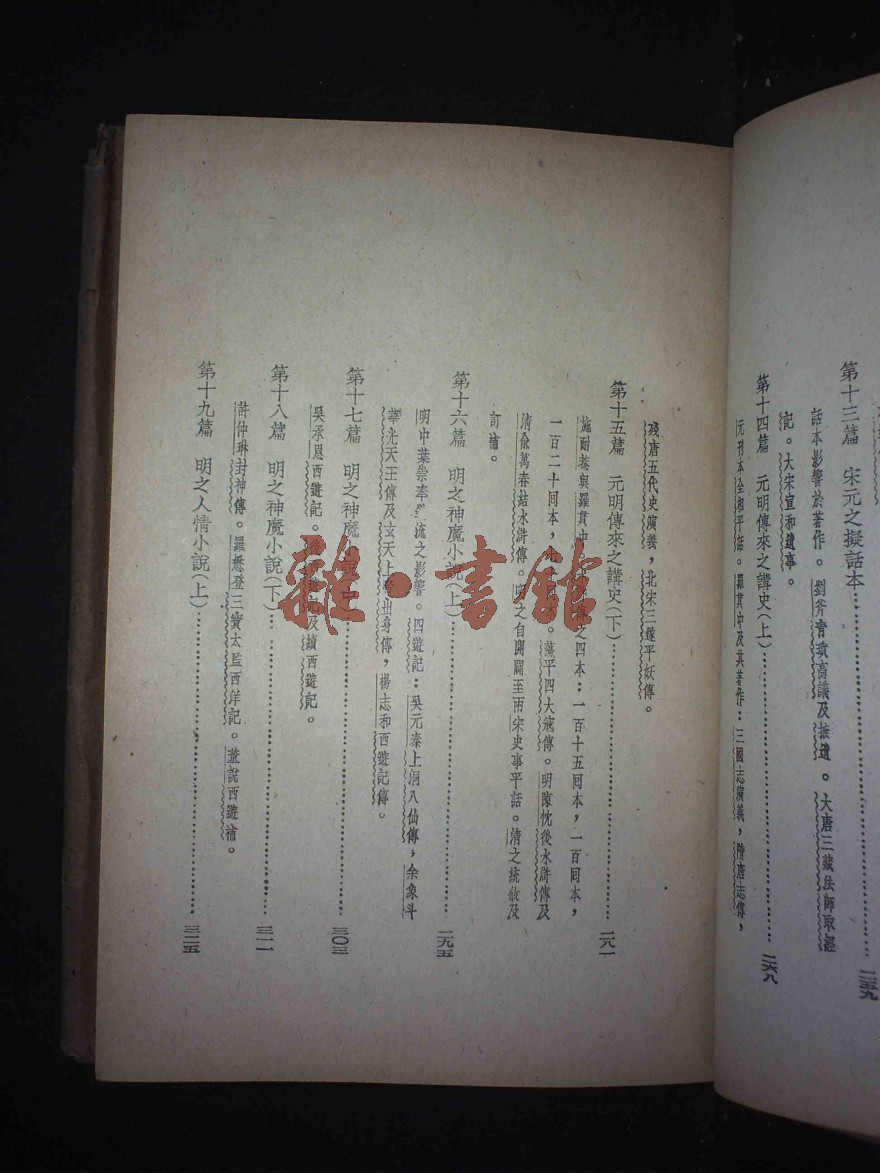 第十三篇　宋元之擬話本…………二五九
話本影響於著作。劉斧青瑣高議及摭遺。大唐三藏法師取經
記。大宋宣和遺事。
第十四篇　元明傳來之講史(上)…………二六八
元刊本全相平話。羅貫中及其著作：三國志演義，隋唐志傳，
殘唐五代史演義，北宋三遂平妖傳。
第十五篇　元明傳來之講史(下)…………二八一
施耐菴與羅貫中 傳之四本：一百十五回本，一百回本，
一百二十回本， 本。蕩平四大寇傳。明陳忱後水滸傳及
清俞萬春結水滸傳。 之自開闢至兩宋史事平話。清之統敘及
訂補。
第十六篇　明之神魔小說(上)…………二九五
明中葉崇奉 流之影響。四遊記：吳元泰上洞八仙傳，余象斗
華光天王傳及玄天上 出身傳，楊志和西遊記傳。
第十七篇　明之神魔 …………三〇三
吳承恩西遊記。 及續西遊記。
第十八篇　明之神魔小說(下)…………三一一
許仲琳封神傳。羅懋登三寶太監西洋記。董說西遊補。
第十九篇　明之人情小說(上)…………三二五
雜·書館